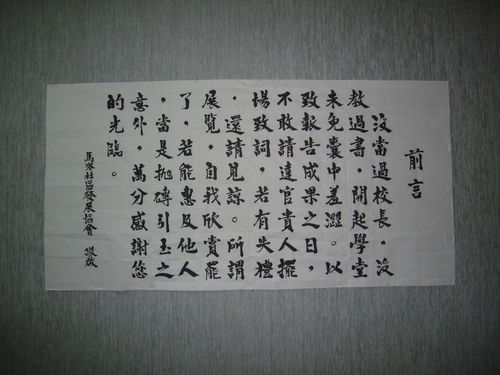 前言
沒當過校長，沒
教過書，開起學堂
未免囊中羞澀。以
致報告成果之日，
不敢請達官貴人擺
場致詞，若有失禮
，還請見諒。所謂
展覽，自我欣賞罷
了，若能惠及他人
，當是拋磚引玉之
意外，萬分感謝您
的光臨。
社區發展協會 敬啟